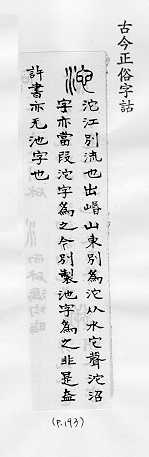 古今正俗字詁
沱江別流也出崏山東別為沱从水它聲沱沼
字亦當段沱字為之今別製池字為之非是益
許書亦无池字也
(P.193)